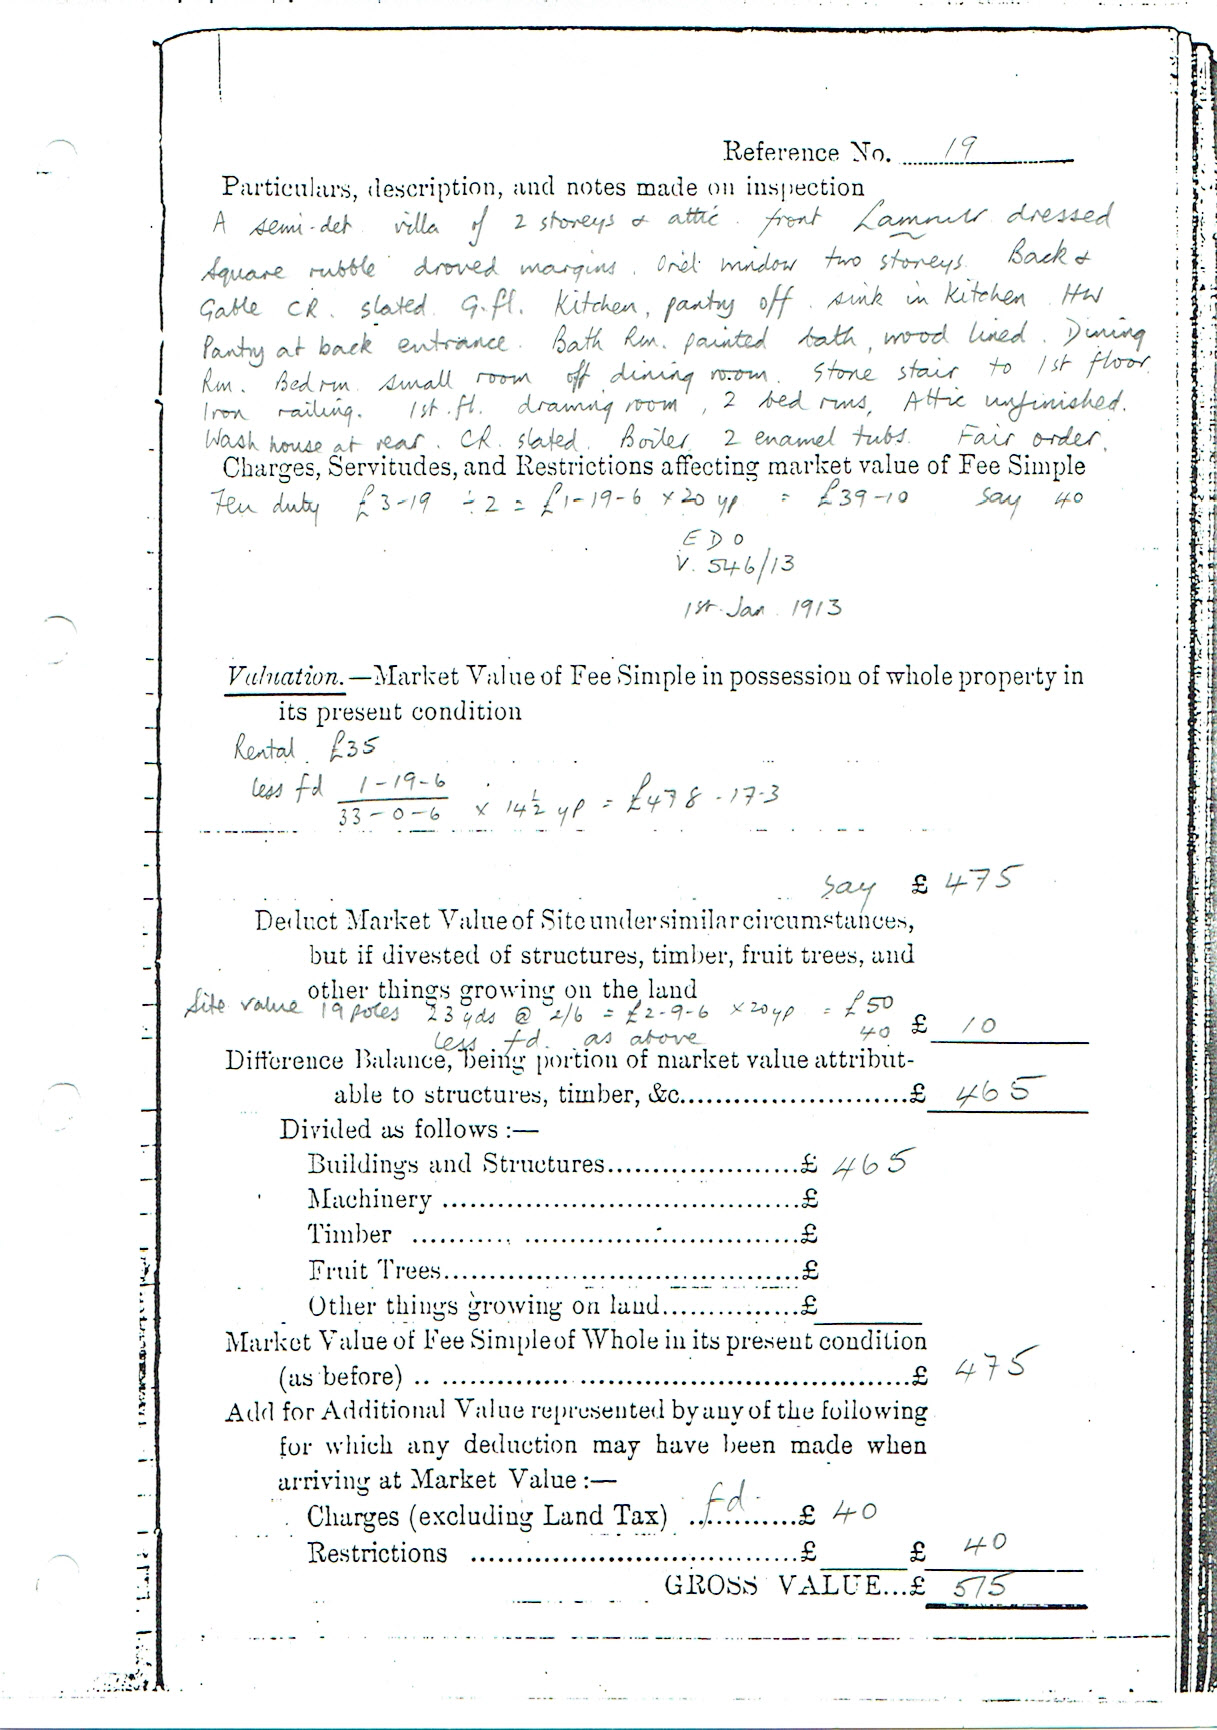 Reference No. 19
Particulars, description, and notes made on inspection
A semi-det villa of 2 storeys & attic. front dressed
square rubble droved margins. Oriel window two storeys. Back &
Gable CR. slated. G.fl. Kitchen, pantry off. sink in Kitchen. HW
Pantry at back entrance. Bath Rm. painted bath, wood lined. Dining
Rm. Bedrm small room off dining room. Stone stair to 1st floor.
Iron railing. 1st.fl. drawing room, 2 bed rms, Attic unfinished.
Wash house at rear. CR. slated. Boiler. 2 enamel tubs. Fair order.
Charges, Servitudes, and Restrictions affecting market value of Fee Simple
Feu duty £3-19 ÷ 2 = £1-19-6 × 20 yp = £39-10 say 40
E D O
V. 546/13
1st Jan. 1913
Valuation.—Market Value of Fee Simple in possession of whole property in
its present condition
Rental £35
less fd 1-19-6
33-0-6 × 14½ yp = £478-17-3
say £ 475
Deduct Market Value of Site under similar circumstances,
but if divested of structures, timber, fruit trees, and
other things growing on the land
Site value 19 poles 23 yds @ 2/6 = £2-9-6 × 20yp = £50
less fd. as above 40 £ 10
Difference Balance, being portion of market value attribut-
able to structures, timber, &c........................£ 465
Divided as follows :—
Buildings and Structures.....................£ 465
Machinery .......................................£
Timber ..........................................£
Fruit Trees.......................................£
Other things growing on land...............£
Market Value of Fee Simple of Whole in its present condition
(as before) .. ....................................................£ 475
Add for Additional Value represented by any of the following
for which any deduction may have been made when
arriving at Market Value :—
Charges (excluding Land Tax) fd. ............£ 40
Restrictions ....................................£ £ 40
GROSS VALUE...£ 515